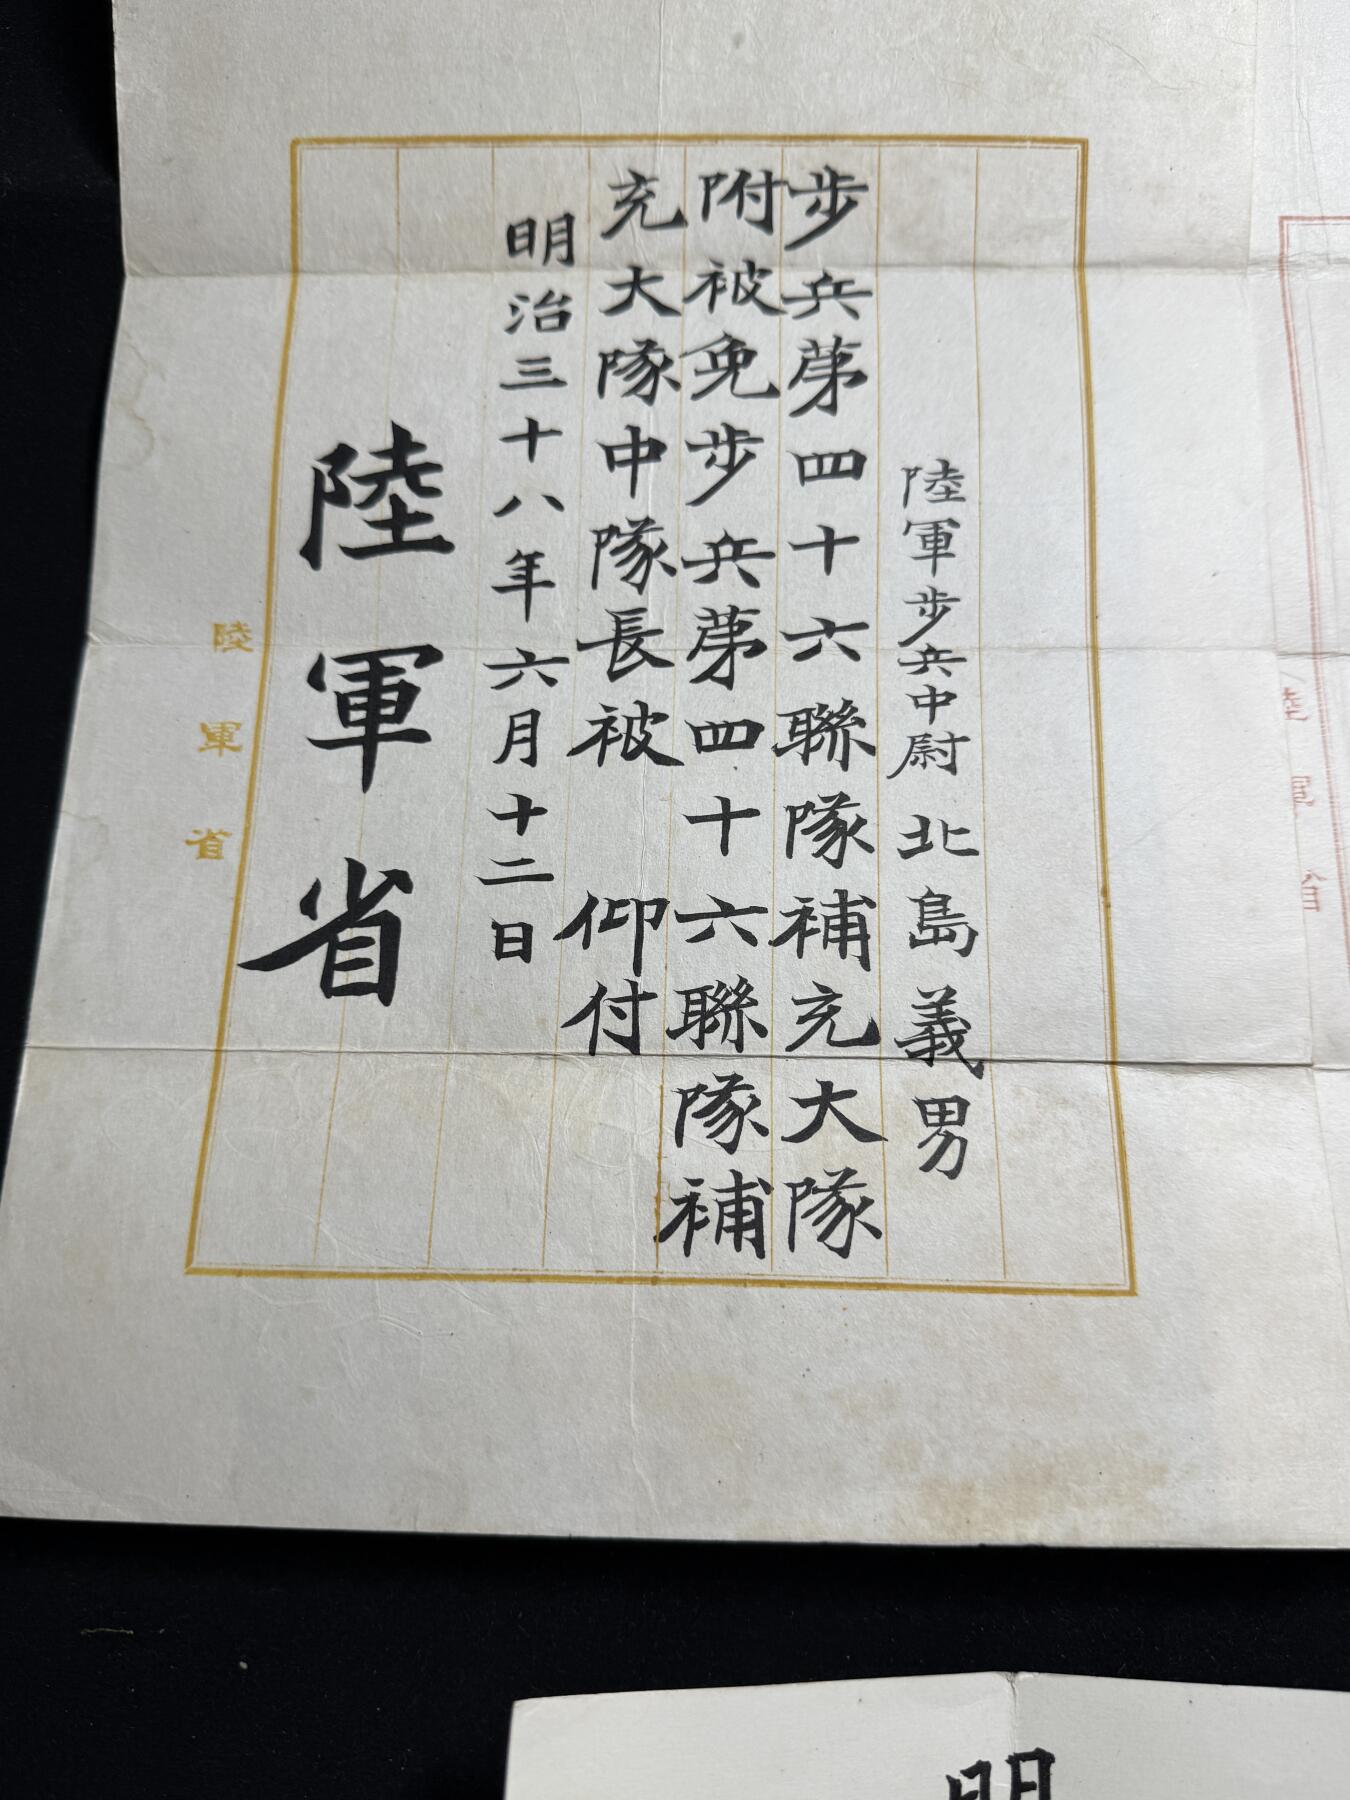 陸軍歩兵中尉 北島義男
歩兵第四十六聯隊補充大隊
附被免歩兵第四十六聯隊補
充大隊中隊長被 仰付
明治三十八年六月十二日
陸軍省
陸軍省
陸軍省
明